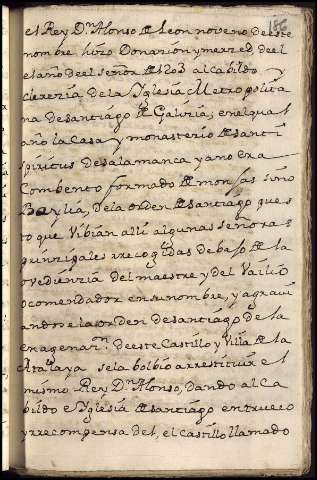 186
el Rey Dn Alonso de Leon noveno de este
nombre hizo Donazion y merzed de el
el año de el señor de 1203 al cabildo y
clerezia de la Yglesia Metropolita
na de santiago de Galizia, en el qual
año la Casa y monasterio de santi
spiritus de salamanca ya no era
Combento formado de monjas sino
Baylia, de la orden de santiago pues
to que Vibian alli algunas señoras
prinzipales rrecogidas debaso de la
ovedienzia del maestre y del Vailio
o comendador en su nombre, y agravi
andose la orden de santiago de la
enagenazn de este Castillo y Villa de la
Atalaya se la bolbio a rrestituir el
mismo Rey Dn Alonso, dando al Ca
bildo e Yglesia de santiago en trueco
y rrecompensa del, el castillo llamado